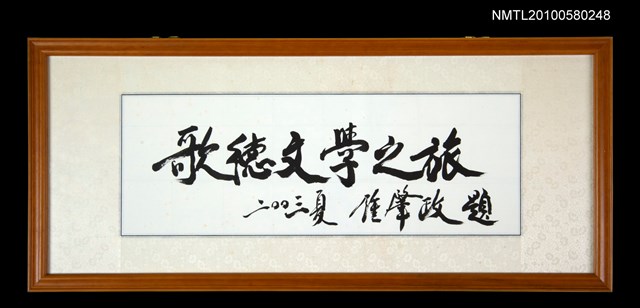 NMTL20100580248
歌德文學之旅
二〇〇三夏 鍾肇政 題